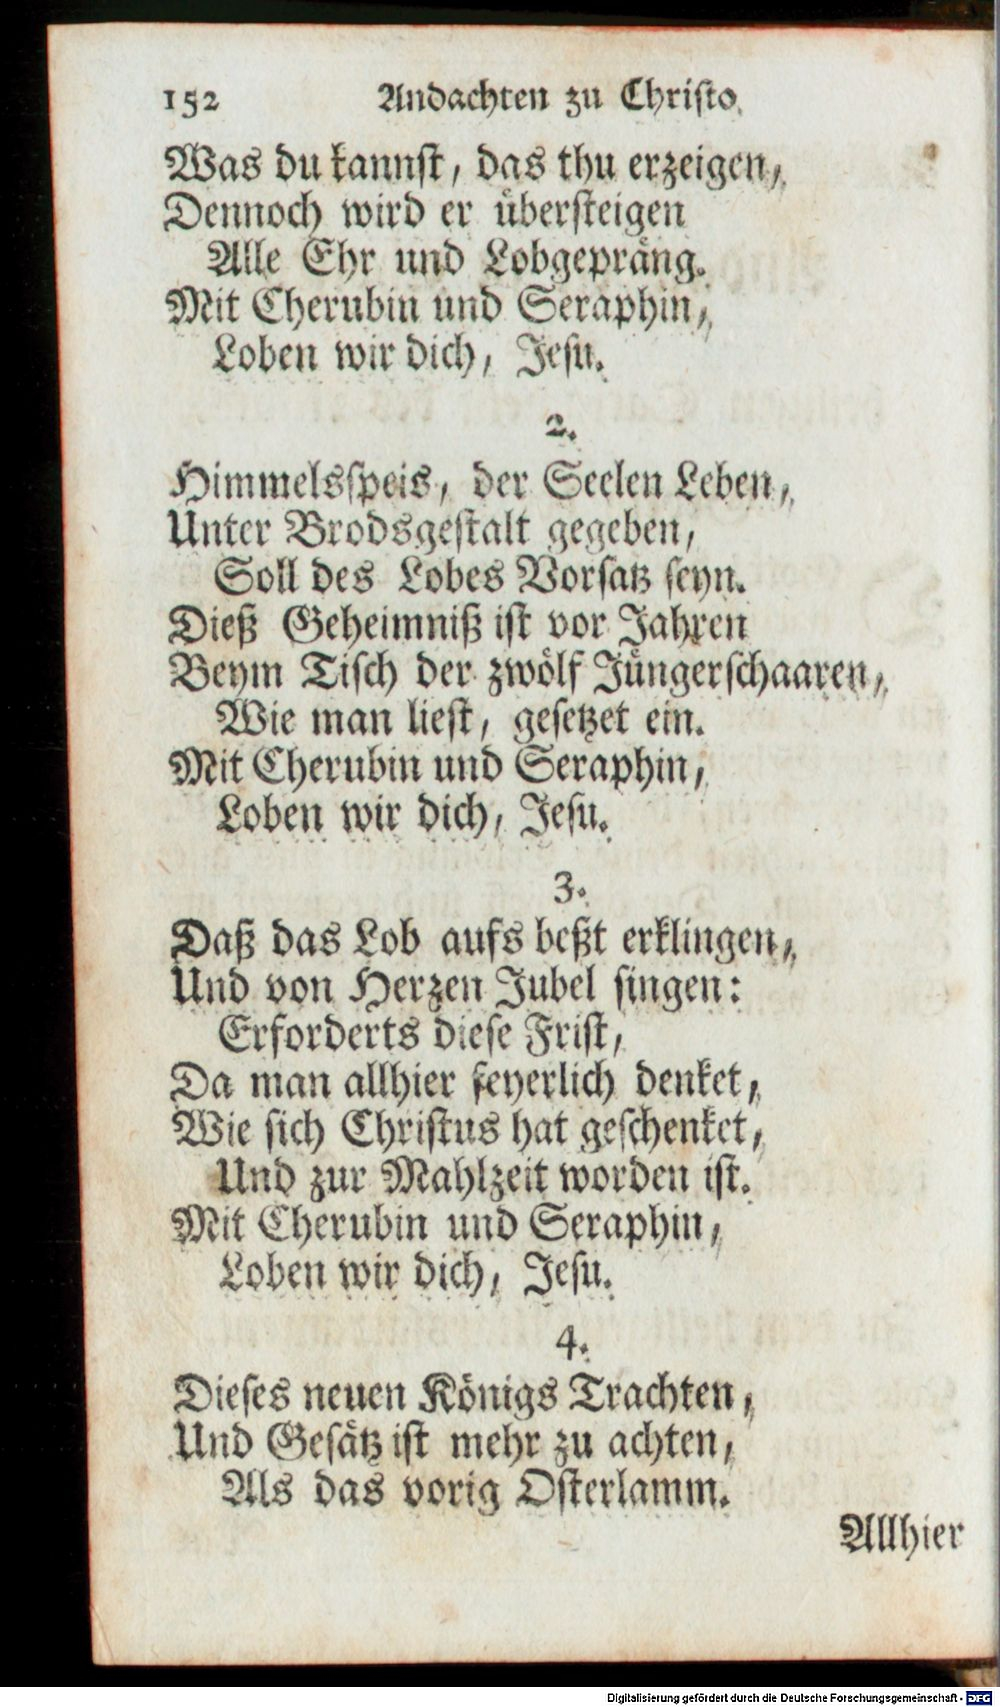 152 Andachten zu Christo.
Was du kannst, das thu erzeigen,
Dennoch wird er übersteigen
Alle Ehr und Lobgepräng.
Mit Cherubin und Seraphin,
Loben wir dich, Jesu.
2.
Himmelsspeis, der Seelen Leben,
Unter Brodsgestalt gegeben,
Soll des Lobes Vorsatz seyn.
Dieß Geheimniß ist vor Jahren
Beym Tisch der zwölf Jüngerschaaren,
Wie man liest, gesetzet ein.
Mit Cherubin und Seraphin,
Loben wir dich, Jesu.
3.
Daß das Lob aufs beßt erklingen,
Und von Herzen Jubel singen:
Erforderts diese Frist,
Da man allhier feyerlich denket,
Wie sich Christus hat geschenket,
Und zur Mahlzeit worden ist.
Mit Cherubin und Seraphin,
Loben wir dich, Jesu.
4.
Dieses neuen Königs Trachten,
Und Gesätz ist mehr zu achten,
Als das vorig Osterlamm.
Allhier
Digitalisierung gefördert durch die Deutsche Forschungsgemeinschaft - DFG